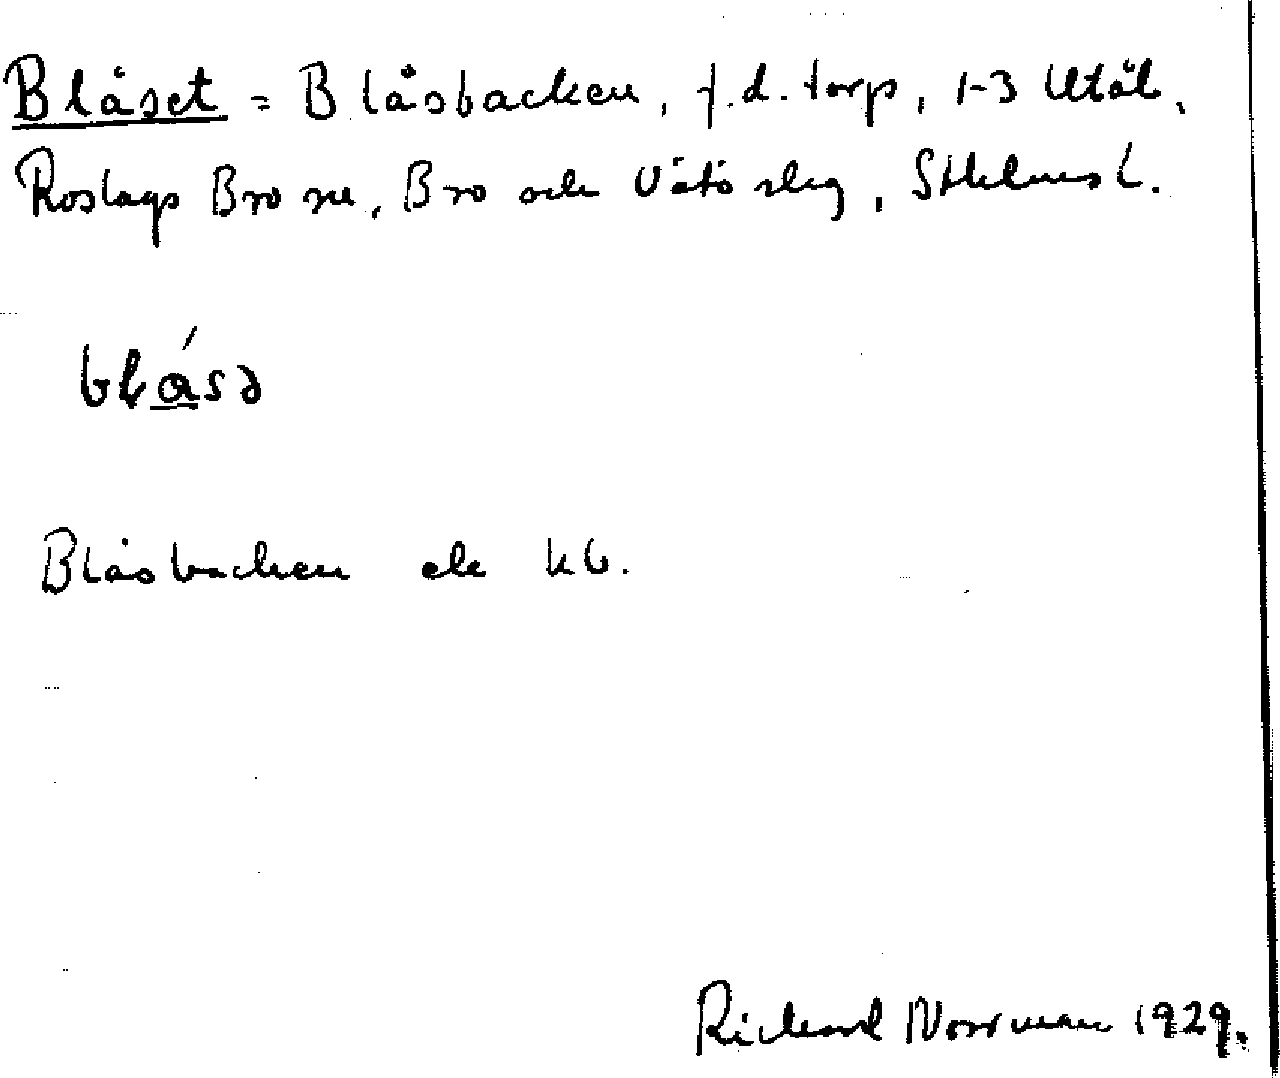 Blåset = Blåsbacken, f.d. torp, 1-3 Utäl,
Roslags Bro sn, Bro och Vätö slg, Sthlms l.
blásə
Blåsbacken ek kb.
Richard Norrman 1929.